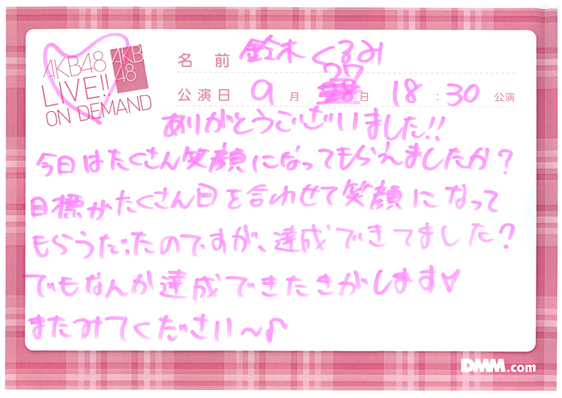 AKB48
LIVE!!
ON DEMAND
AKB
48
名前 鈴木くるみ
公演日 9月27日 18:30公演
ありがとうございました!!
今日はたくさん笑顔になってもらえましたか?
目標がたくさん目を合わせて笑顔になって
もらうだったのですが、達成できてました?
でもなんか達成できたきがします♡
またみてください〜♪
DMM.com